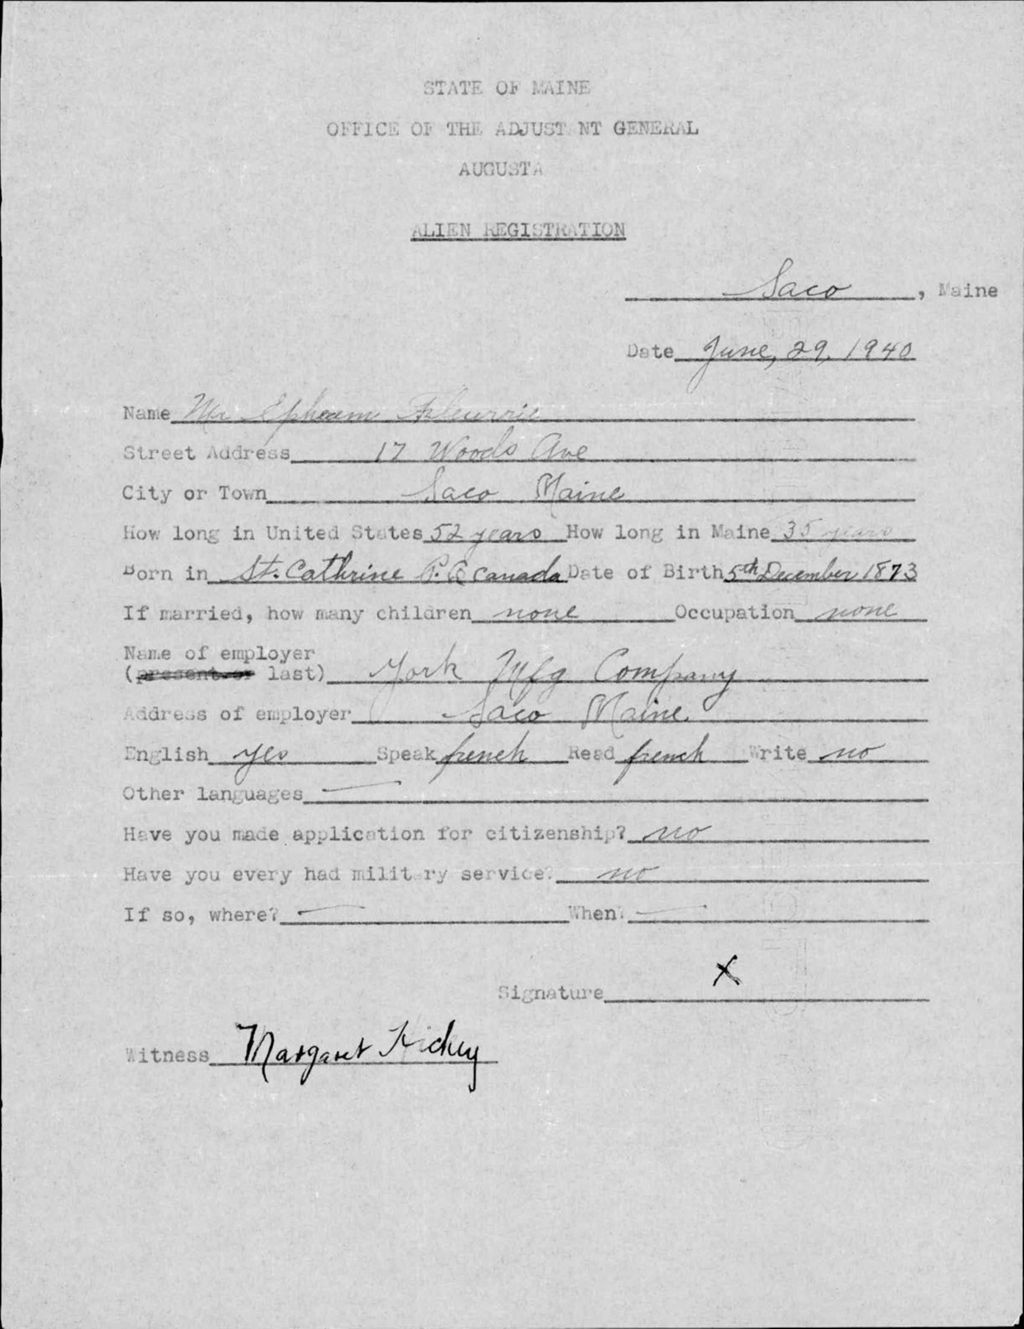 STATE OF MAINE
OFFICE OF THE ADJUSTANT GENERAL
AUGUSTA
ALIEN REGISTRATION
Saco, Maine
Date June, 29, 1940
Name Mr Ephream
Street Address 17 Woods Ave
City or Town Saco Maine
How long in United States 52 years How long in Maine 35 years
Born in St. Cathrine P. Q Canada Date of Birth 5th December 1873
If married, how many children none Occupation none
Name of employer
(present or last) York Mfg Company
Address of employer Saco Maine.
English yes Speak french Read french Write no
Other languages —
Have you made application for citizenship? no
Have you every had military service? no
If so, where? — When? —
Signature X
Witness Margaret Hickey